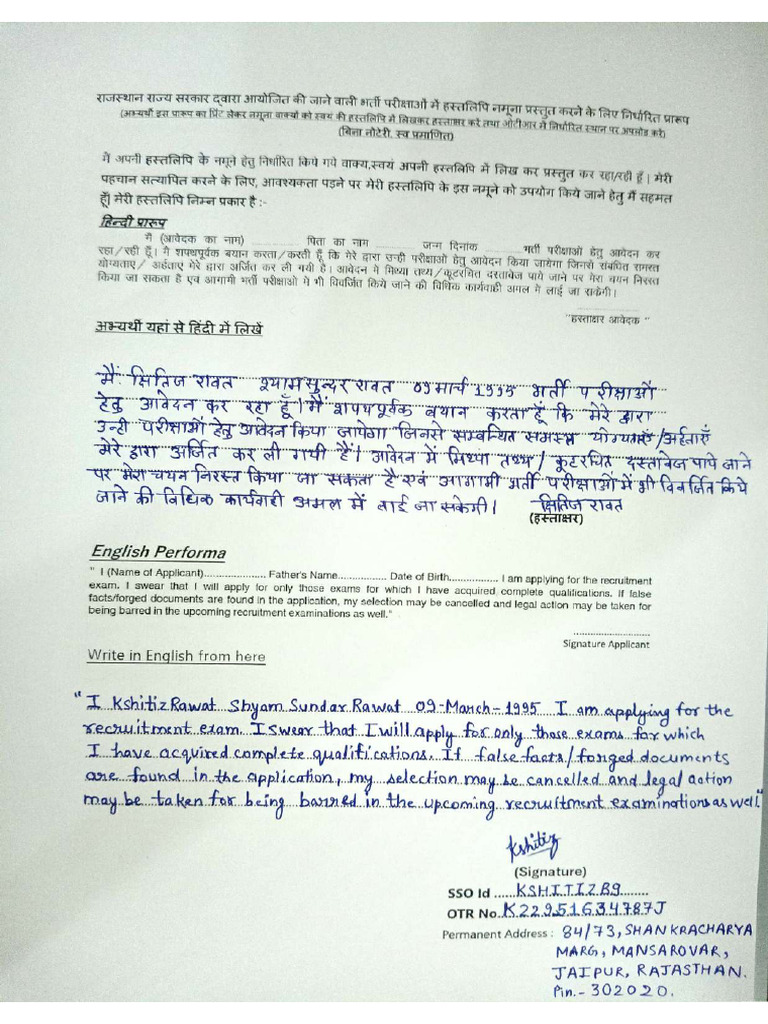 राजस्थान राज्य सरकार द्वारा आयोजित की जाने वाली भर्ती परीक्षाओं में हस्तलिपि नमूना प्रस्तुत करने के लिए निर्धारित प्रारूप
(अभ्यर्थी इस प्रारूप का प्रिंट लेकर नमूना वाक्यों को स्वयं की हस्तलिपि में लिखकर हस्ताक्षर करे तथा ओटीआर में निर्धारित स्थान पर अपलोड करे)
(बिना नोटेरी, स्व प्रमाणित)
मैं अपनी हस्तलिपि के नमूने हेतु निर्धारित किये गये वाक्य,स्वयं अपनी हस्तलिपि में लिख कर प्रस्तुत कर रहा/रही हूँ | मेरी
पहचान सत्यापित करने के लिए, आवश्यकता पड़ने पर मेरी हस्तलिपि के इस नमूने को उपयोग किये जाने हेतु मैं सहमत
हूँ| मेरी हस्तलिपि निम्न प्रकार है :-
हिन्दी प्रारूप
मैं (आवेदक का नाम) .................. पिता का नाम .................. जन्म दिनांक ............ भर्ती परीक्षाओं हेतु आवेदन कर
रहा/रही हूँ। मैं शपथपूर्वक बयान करता/करती हूँ कि मेरे द्वारा उन्ही परीक्षाओं हेतु आवेदन किया जायेगा जिनसे संबंधित समस्त
योग्यताएं/ अर्हताएं मेरे द्वारा अर्जित कर ली गयी है। आवेदन में मिथ्या तथ्य/कूटरचित दस्तावेज पाये जाने पर मेरा चयन निरस्त
किया जा सकता है एवं आगामी भर्ती परीक्षाओं में भी विवर्जित किये जाने की विधिक कार्यवाही अमल में लाई जा सकेगी।
"हस्ताक्षर आवेदक "
अभ्यर्थी यहां से हिंदी में लिखें
मैं क्षितिज रावत श्यामसुन्दर रावत 09 मार्च 1995 भर्ती परीक्षाओं
हेतु आवेदन कर रहा हूँ। मैं शपथपूर्वक बयान करता हूँ कि मेरे द्वारा
उन्ही परीक्षाओं हेतु आवेदन किया जायेगा जिनसे सम्बन्धित समस्त योग्यताएँ/अर्हताएँ
मेरे द्वारा अर्जित कर ली गयी हैं। आवेदन में मिथ्या तथ्य/ कूटरचित दस्तावेज पाये जाने
पर मेरा चयन निरस्त किया जा सकता है एवं आगामी भर्ती परीक्षाओं में भी विवर्जित किये
जाने की विधिक कार्यवाही अमल में लाई जा सकेगी। क्षितिज रावत
(हस्ताक्षर)
English Performa
" I (Name of Applicant)................... Father's Name............... Date of Birth............... I am applying for the recruitment
exam. I swear that I will apply for only those exams for which I have acquired complete qualifications. If false
facts/forged documents are found in the application, my selection may be cancelled and legal action may be taken for
being barred in the upcoming recruitment examinations as well."
Signature Applicant
Write in English from here
"I Kshitiz Rawat Shyam Sundar Rawat 09-March-1995 I am applying for the
recruitment exam. I swear that I will apply for only those exams for which
I have acquired complete qualifications. If false facts/forged documents
are found in the application, my selection may be cancelled and legal action
may be taken for being barred in the upcoming recruitment examinations as well."
Kshitiz
(Signature)
SSO Id ......KSHITIZB9........
OTR No.K22951634787J
Permanent Address : 84/73, SHANKRACHARYA
MARG, MANSAROVAR,
JAIPUR, RAJASTHAN.
Pin.- 302020.